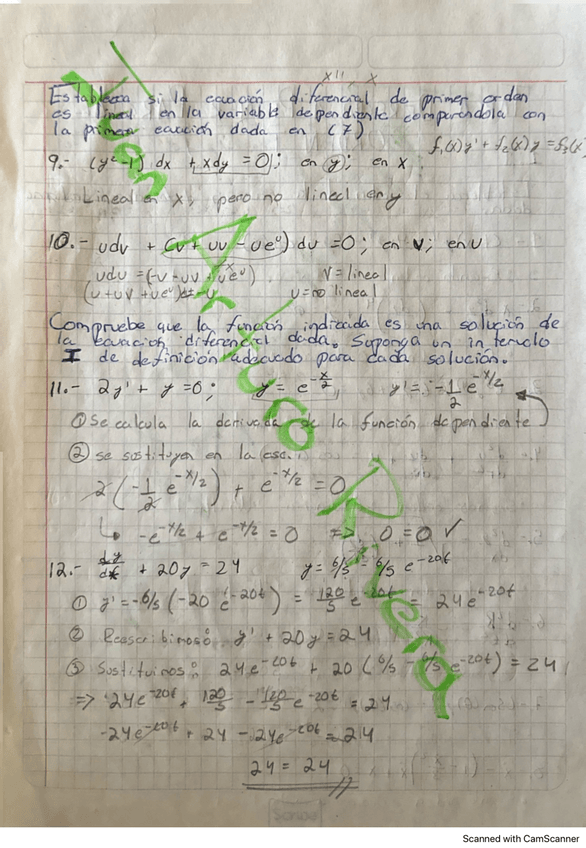 Establezca si la ecuación diferencial de primer orden
es lineal en la variable dependiente comparándola con
la primera ecuación dada en (7)
f₁(x)y' + f₂(x)y = f₃(x
9.- (y²-1) dx + xdy = 0; en (y); en x
Lineal en x, pero no lineal en y
10.- udv + (v + uv - ue^u) du = 0; en v; en u
v = lineal
u = no lineal
Compruebe que la función indicada es una solución de
la ecuación diferencial dada. Suponga un intervalo
I de definición adecuado para cada solución.
11.- 2y' + y = 0; y = e^-x/2, y' = -1/2 e^-x/2
① Se calcula la derivada de la función dependiente
② se sustituyen en la
2(-1/2 e^-x/2) + e^-x/2 = 0
-e^-x/2 + e^-x/2 = 0 => 0 = 0 ✓
12.- dy/dt + 20y = 24 y = 6/5 - 6/5 e^-20t
① y' = -6/5 (-20 e^-20t) = 120/5 e^-20t = 24e^-20t
② Reescribimos: y' + 20y = 24
③ Sustituimos: 24e^-20t + 20 (6/5 - 6/5 e^-20t) = 24
=> 24e^-20t + 120/5 - 120/5 e^-20t = 24
24e^-20t + 24 - 24e^-20t = 24
24 = 24
Arturo
Rivera
Scribe
Scanned with CamScanner